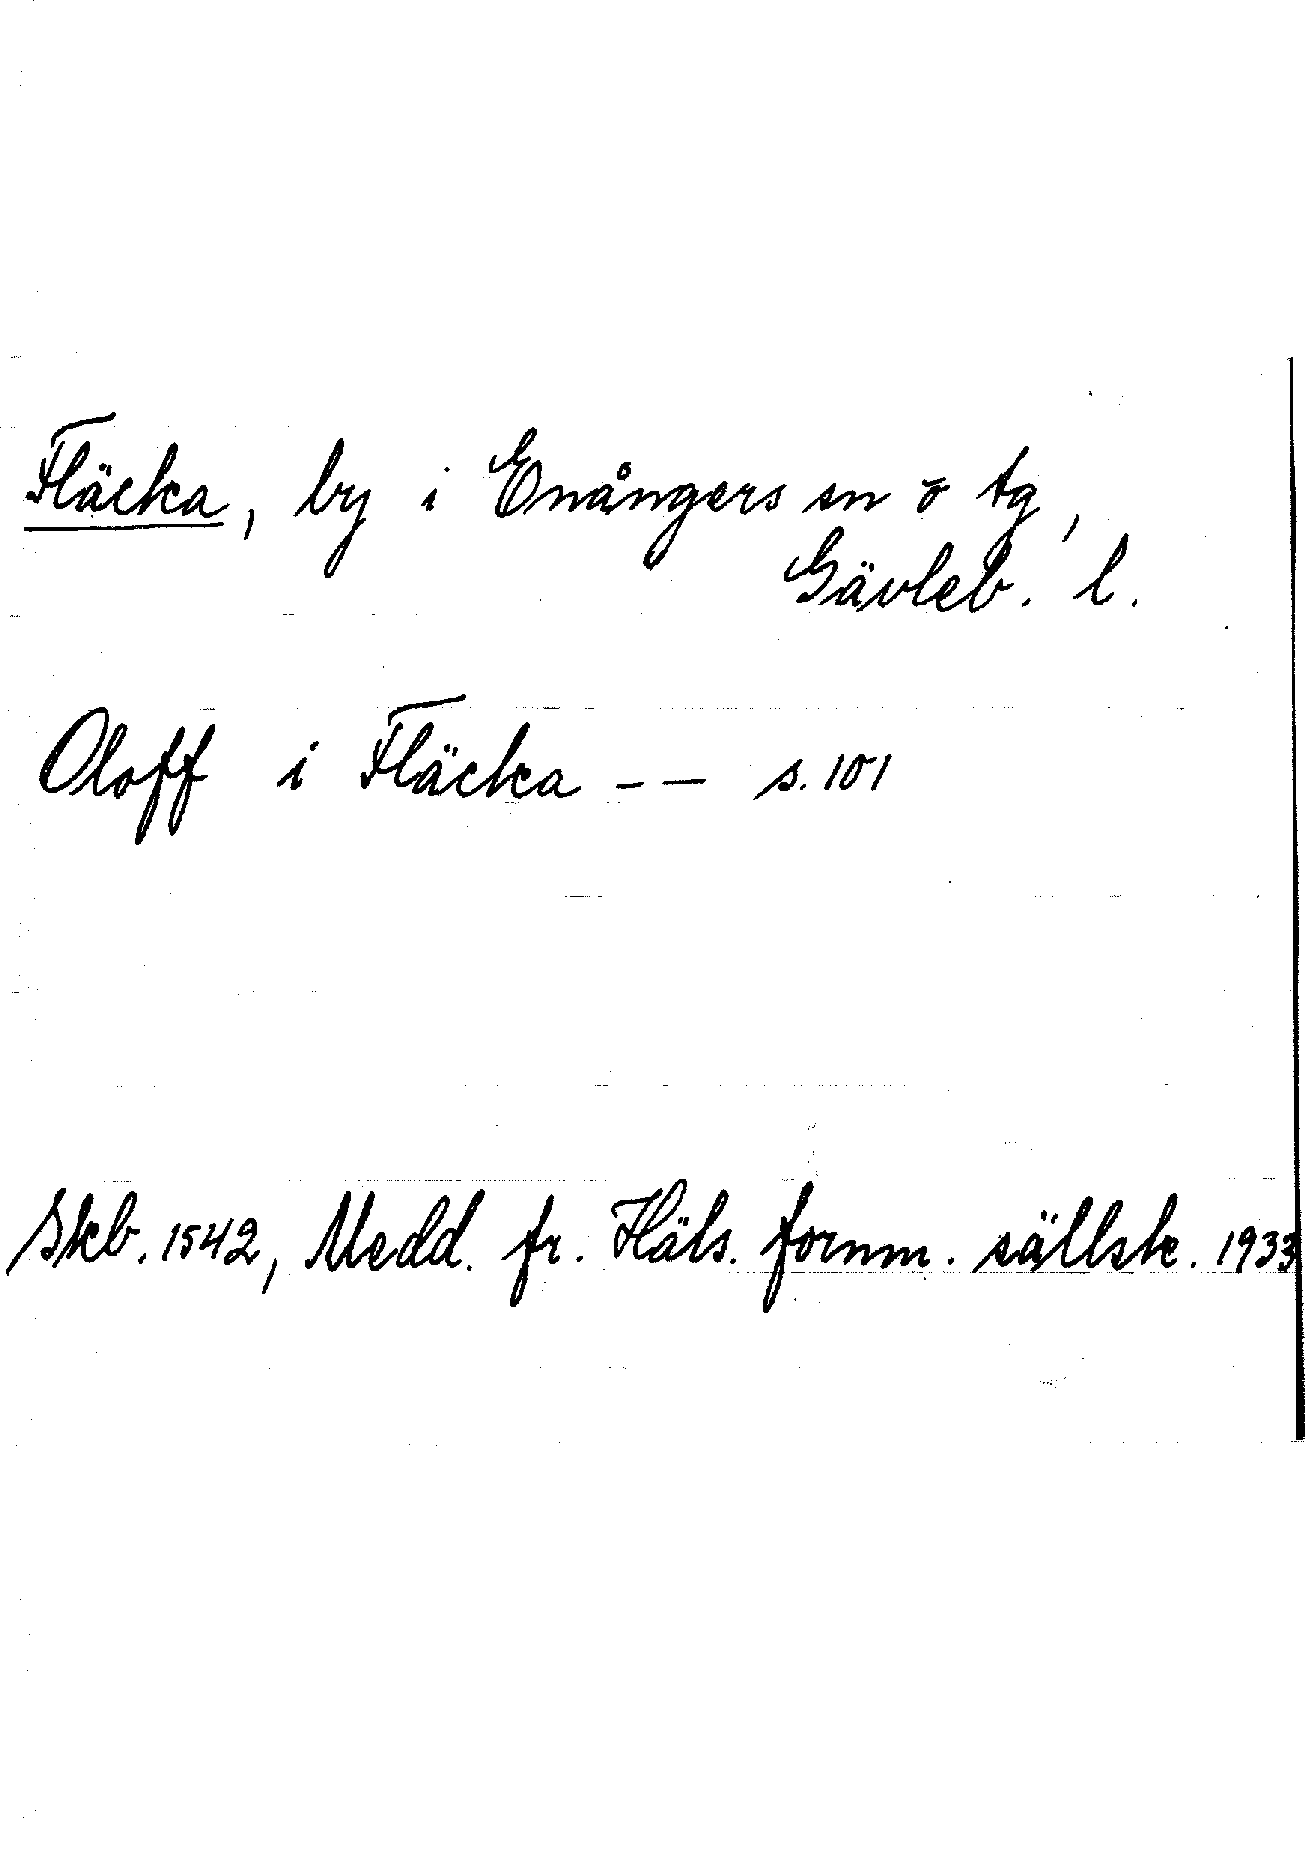 Fläcka, by i Enångers sn o tg,
Gävleb. l.
Oloff i Fläcka -- s. 101
Skb. 1542, Medd. fr. Häls. fornm. sällsk. 1933